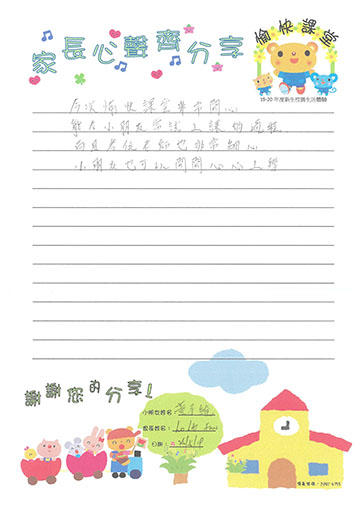 家長心聲齊分享
愉快課堂
19-20 年度新生校園生活體驗
今次愉快課堂非常開心
能令小朋友嘗試上課的過程
而且老師也非常細心
小朋友也可以開開心心上學
謝謝您的分享!
小朋友姓名:
家長姓名:
日期: